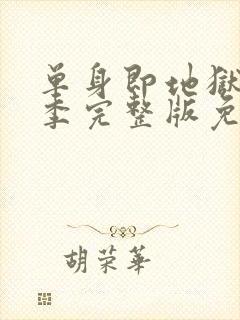 单身即地獄
季完整版免
胡荣華